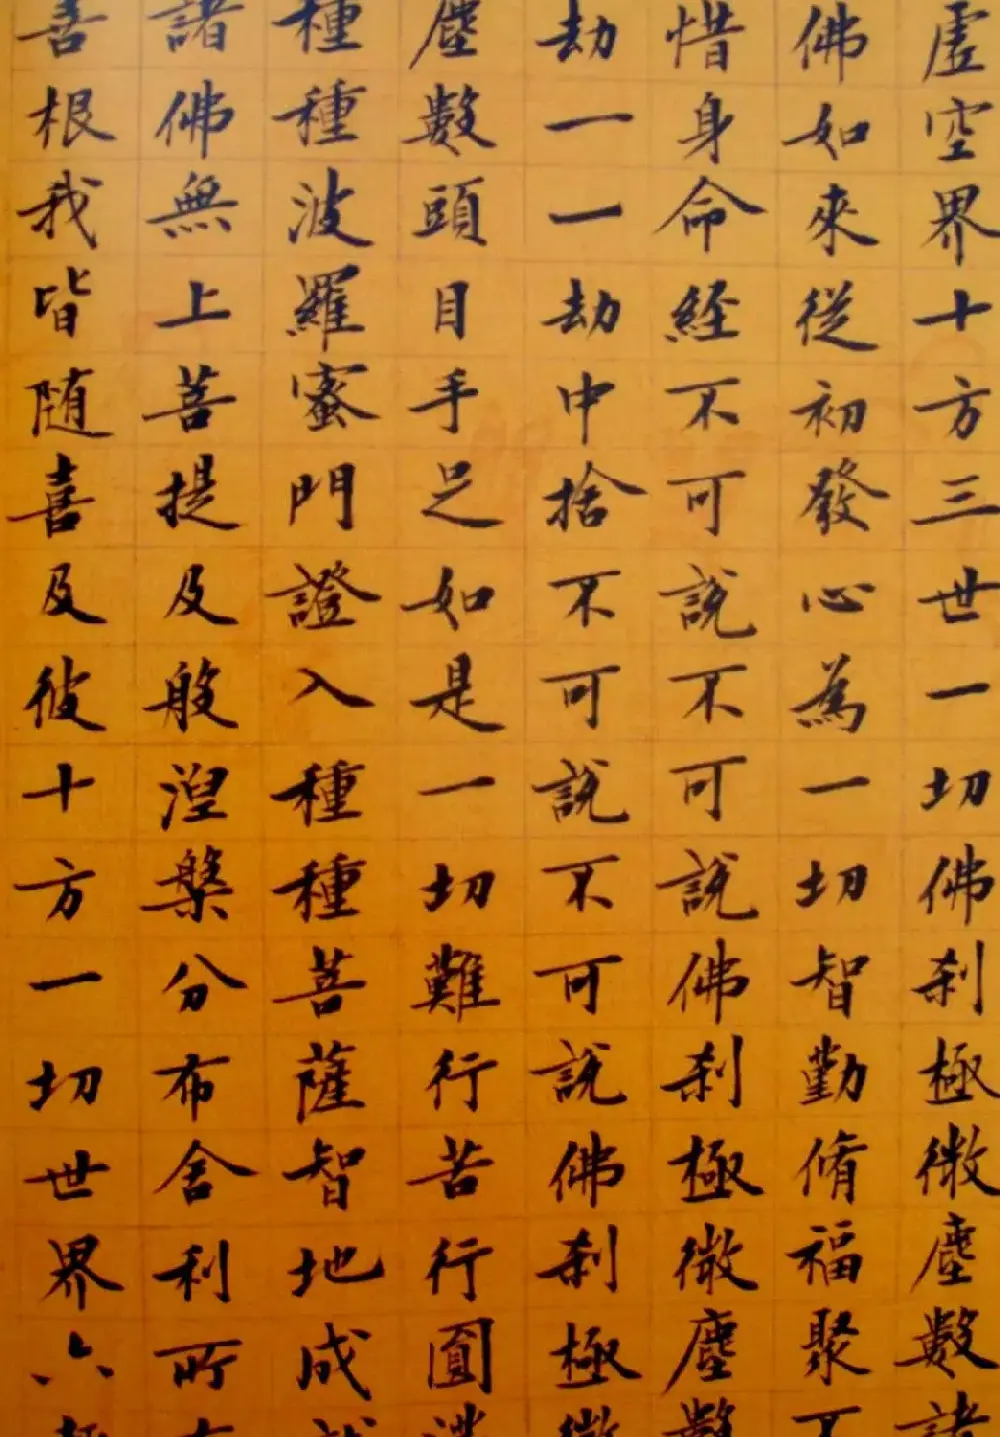 虛空界十方三世一切佛刹極微塵數諸
佛如來從初發心為一切智勤脩福聚不
惜身命經不可說不可說佛刹極微塵數
劫一一劫中捨不可說不可說佛刹極微
塵數頭目手足如是一切難行苦行圓滿
種種波羅蜜門證入種種菩薩智地成就
諸佛無上菩提及般涅槃分布舍利所有
善根我皆随喜及彼十方一切世界六趣